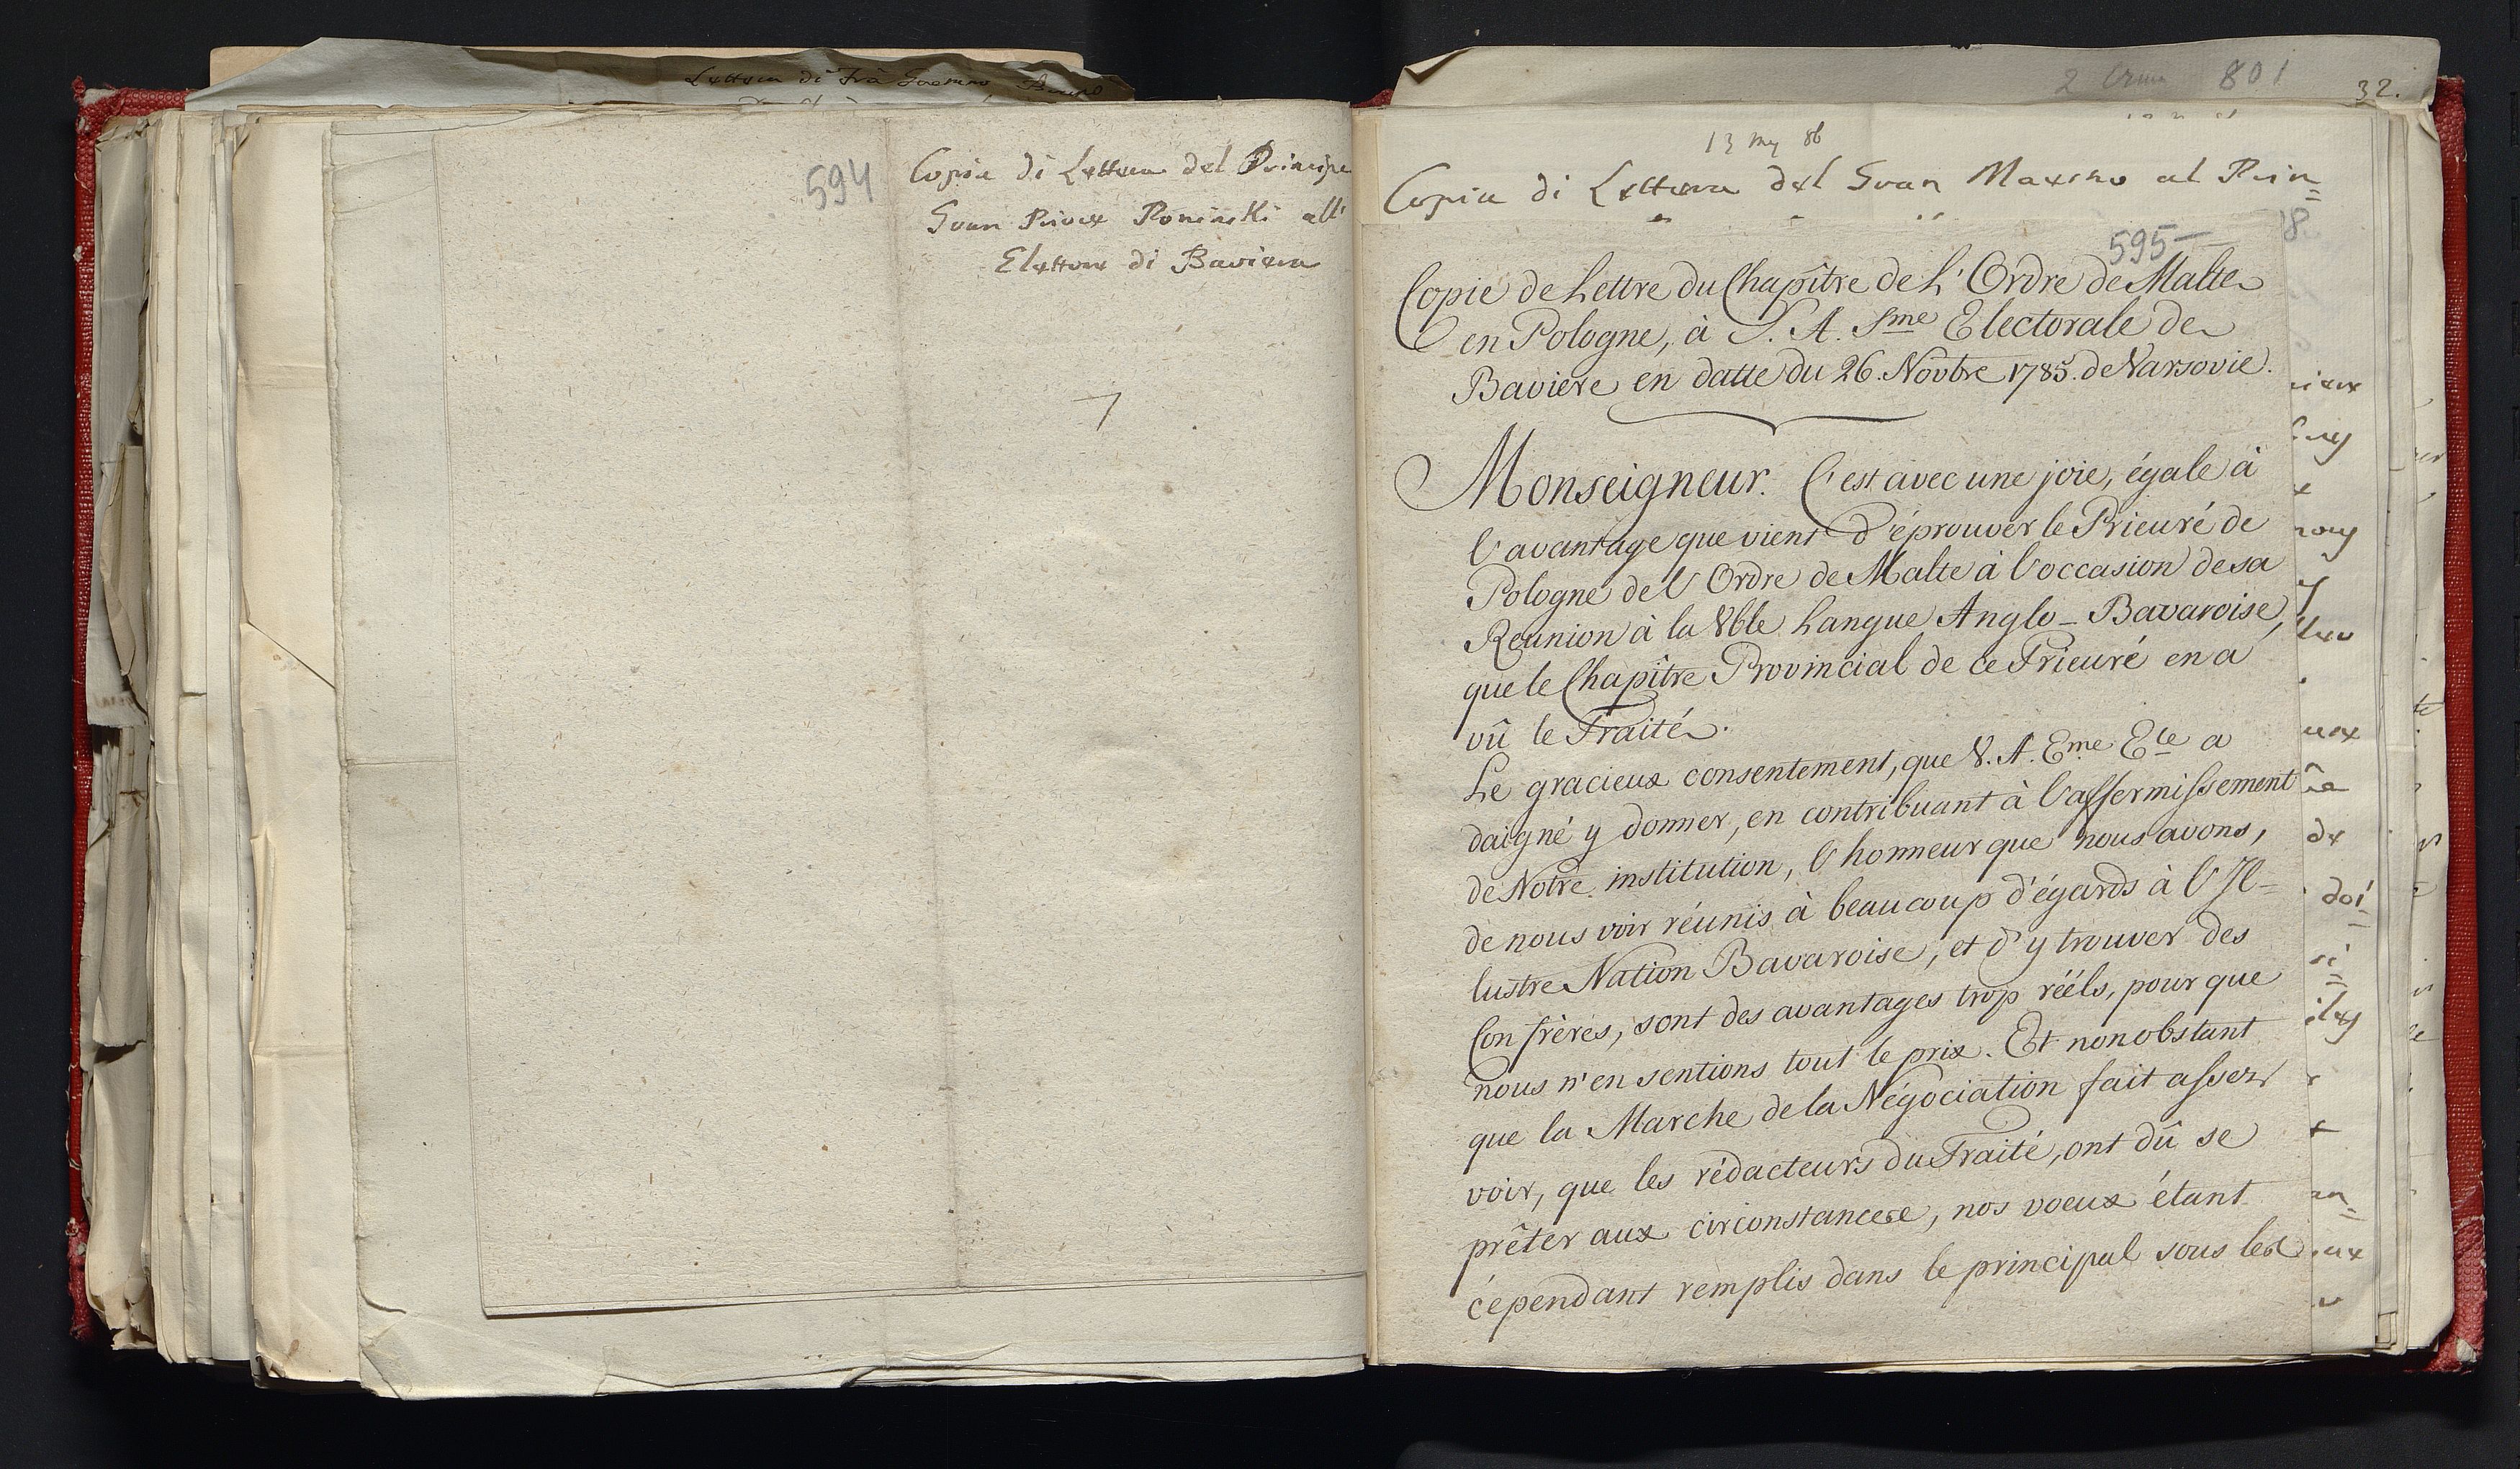 Lettera di Frà Gaetano Bruno
594
Copia di Lettera del Principe
Gran Priore Poninski all'
Elettore di Baviera
7
801
32.
13 my 86
Copia di Lettera del Gran Maestro al Prin=
8
595—
Copie de Lettre du Chapître de L'Ordre de Malte
en Pologne, à S. A. Sme Electorale de
Bavière en datte du 26. Novbre 1785. de Varsovie.
Monseigneur. C'est avec une joie, égale à
l'avantage que vient d'éprouver le Prieuré de
Pologne de l'Ordre de Malte à l'occasion de sa
Reunion à la Vble Langue Anglo-Bavaroise,
que le Chapître Provincial de ce Prieuré en a
vû le Traité.
Le gracieux consentement, que V. A. Eme Ele a
daigné y donner, en contribuant à l'affermissement
de Notre institution, l'honneur que nous avons,
de nous voir réunis à beaucoup d'égards à l'Il=
lustre Nation Bavaroise, et d'y trouver des
Confrères, sont des avantages trop réëls, pour que
nous n'en sentions tout le prix. Et nonobstant
que la Marche de la Négociation fait assez
voir, que les rédacteurs du Traité, ont dû se
prêter aux circonstances, nos voeux étant
cépendant remplis dans le principal sous les